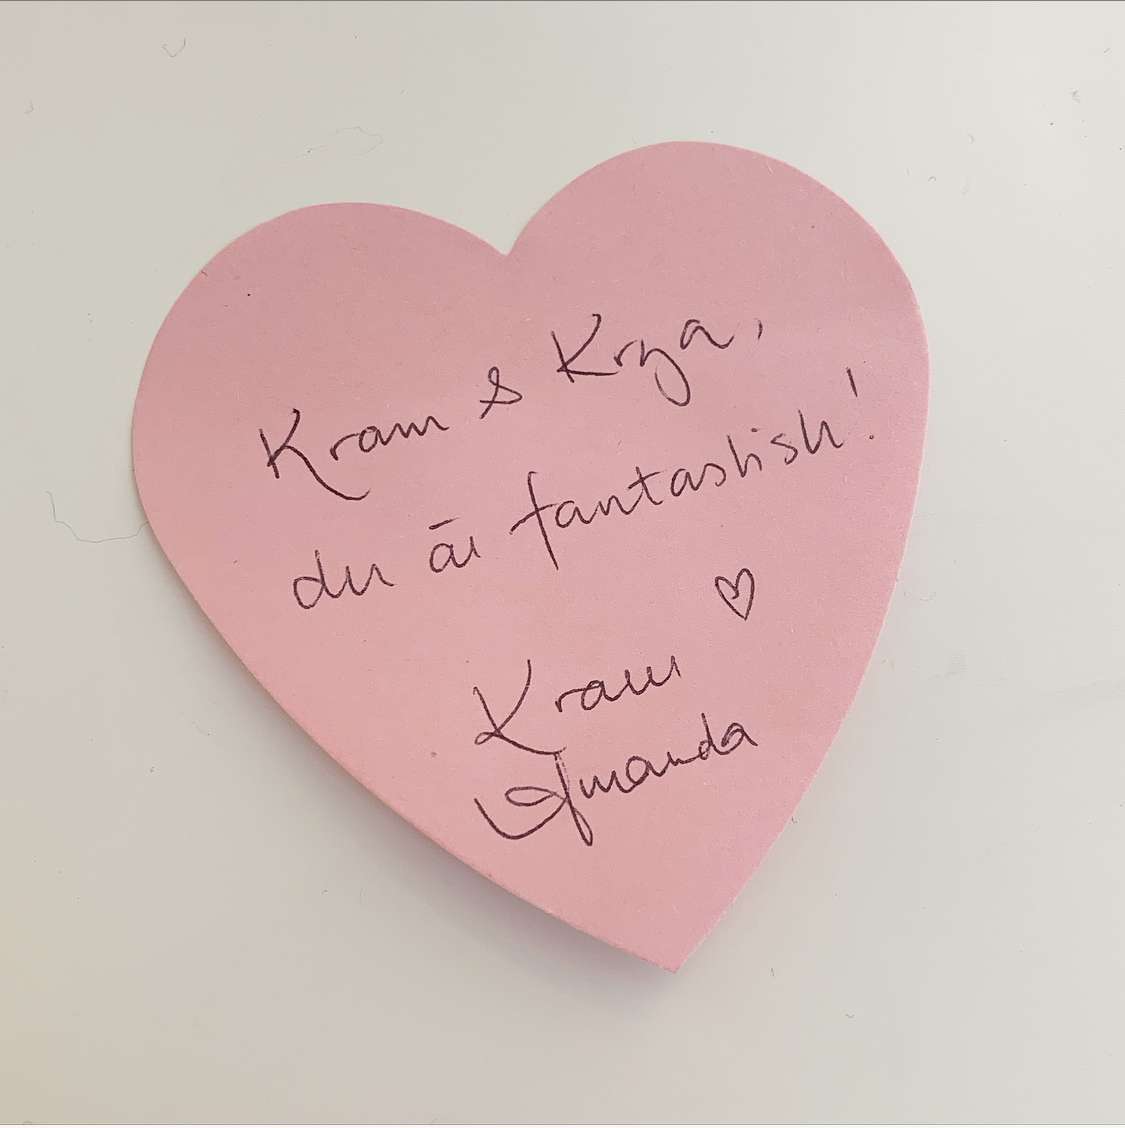 Kram & Krya,
du är fantastisk!
Kram
Amanda